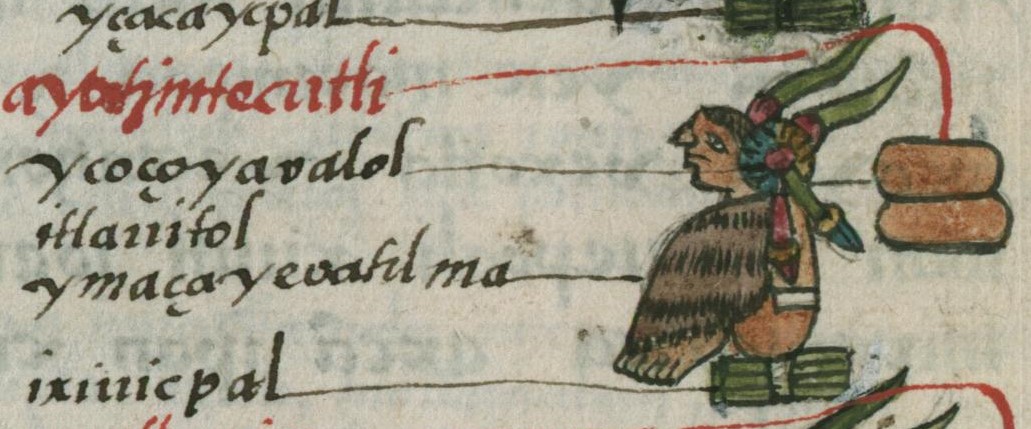 yçacaycpal
ayotzintecutli
ycoçoyavalol
itlauitol
ymaçayevatil ma
ixiuicpal